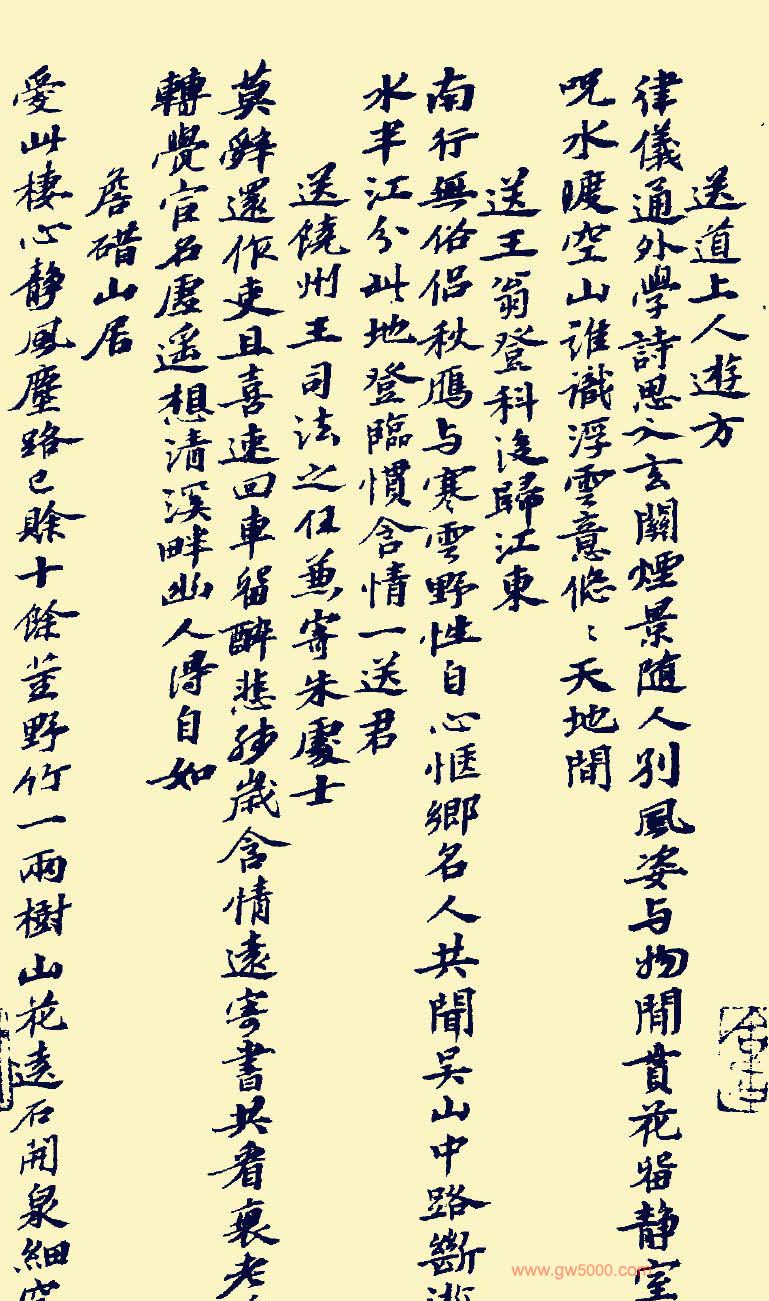 送道上人遊方
律儀通外學詩思入玄關煙景随人别風姿与物閒貫花留静室
呪水渡空山誰識浮雲意悠〻天地間
送王翁登科後歸江東
南行無俗侣秋鴈与寒雲野性自心愜鄉名人共聞吴山中路斷浙
水半江分此地登臨慣含情一送君
送饒州王司法之任兼寄朱處士
莫辞還作吏且喜速回車留醉悲殘歲含情遠寄書共看衰老
轉覺官名虚遥想清溪畔幽人得自如
居
愛此棲心静風塵路已賖十餘莖野竹一兩樹山花遶石開泉細穿
www.gw5000.com